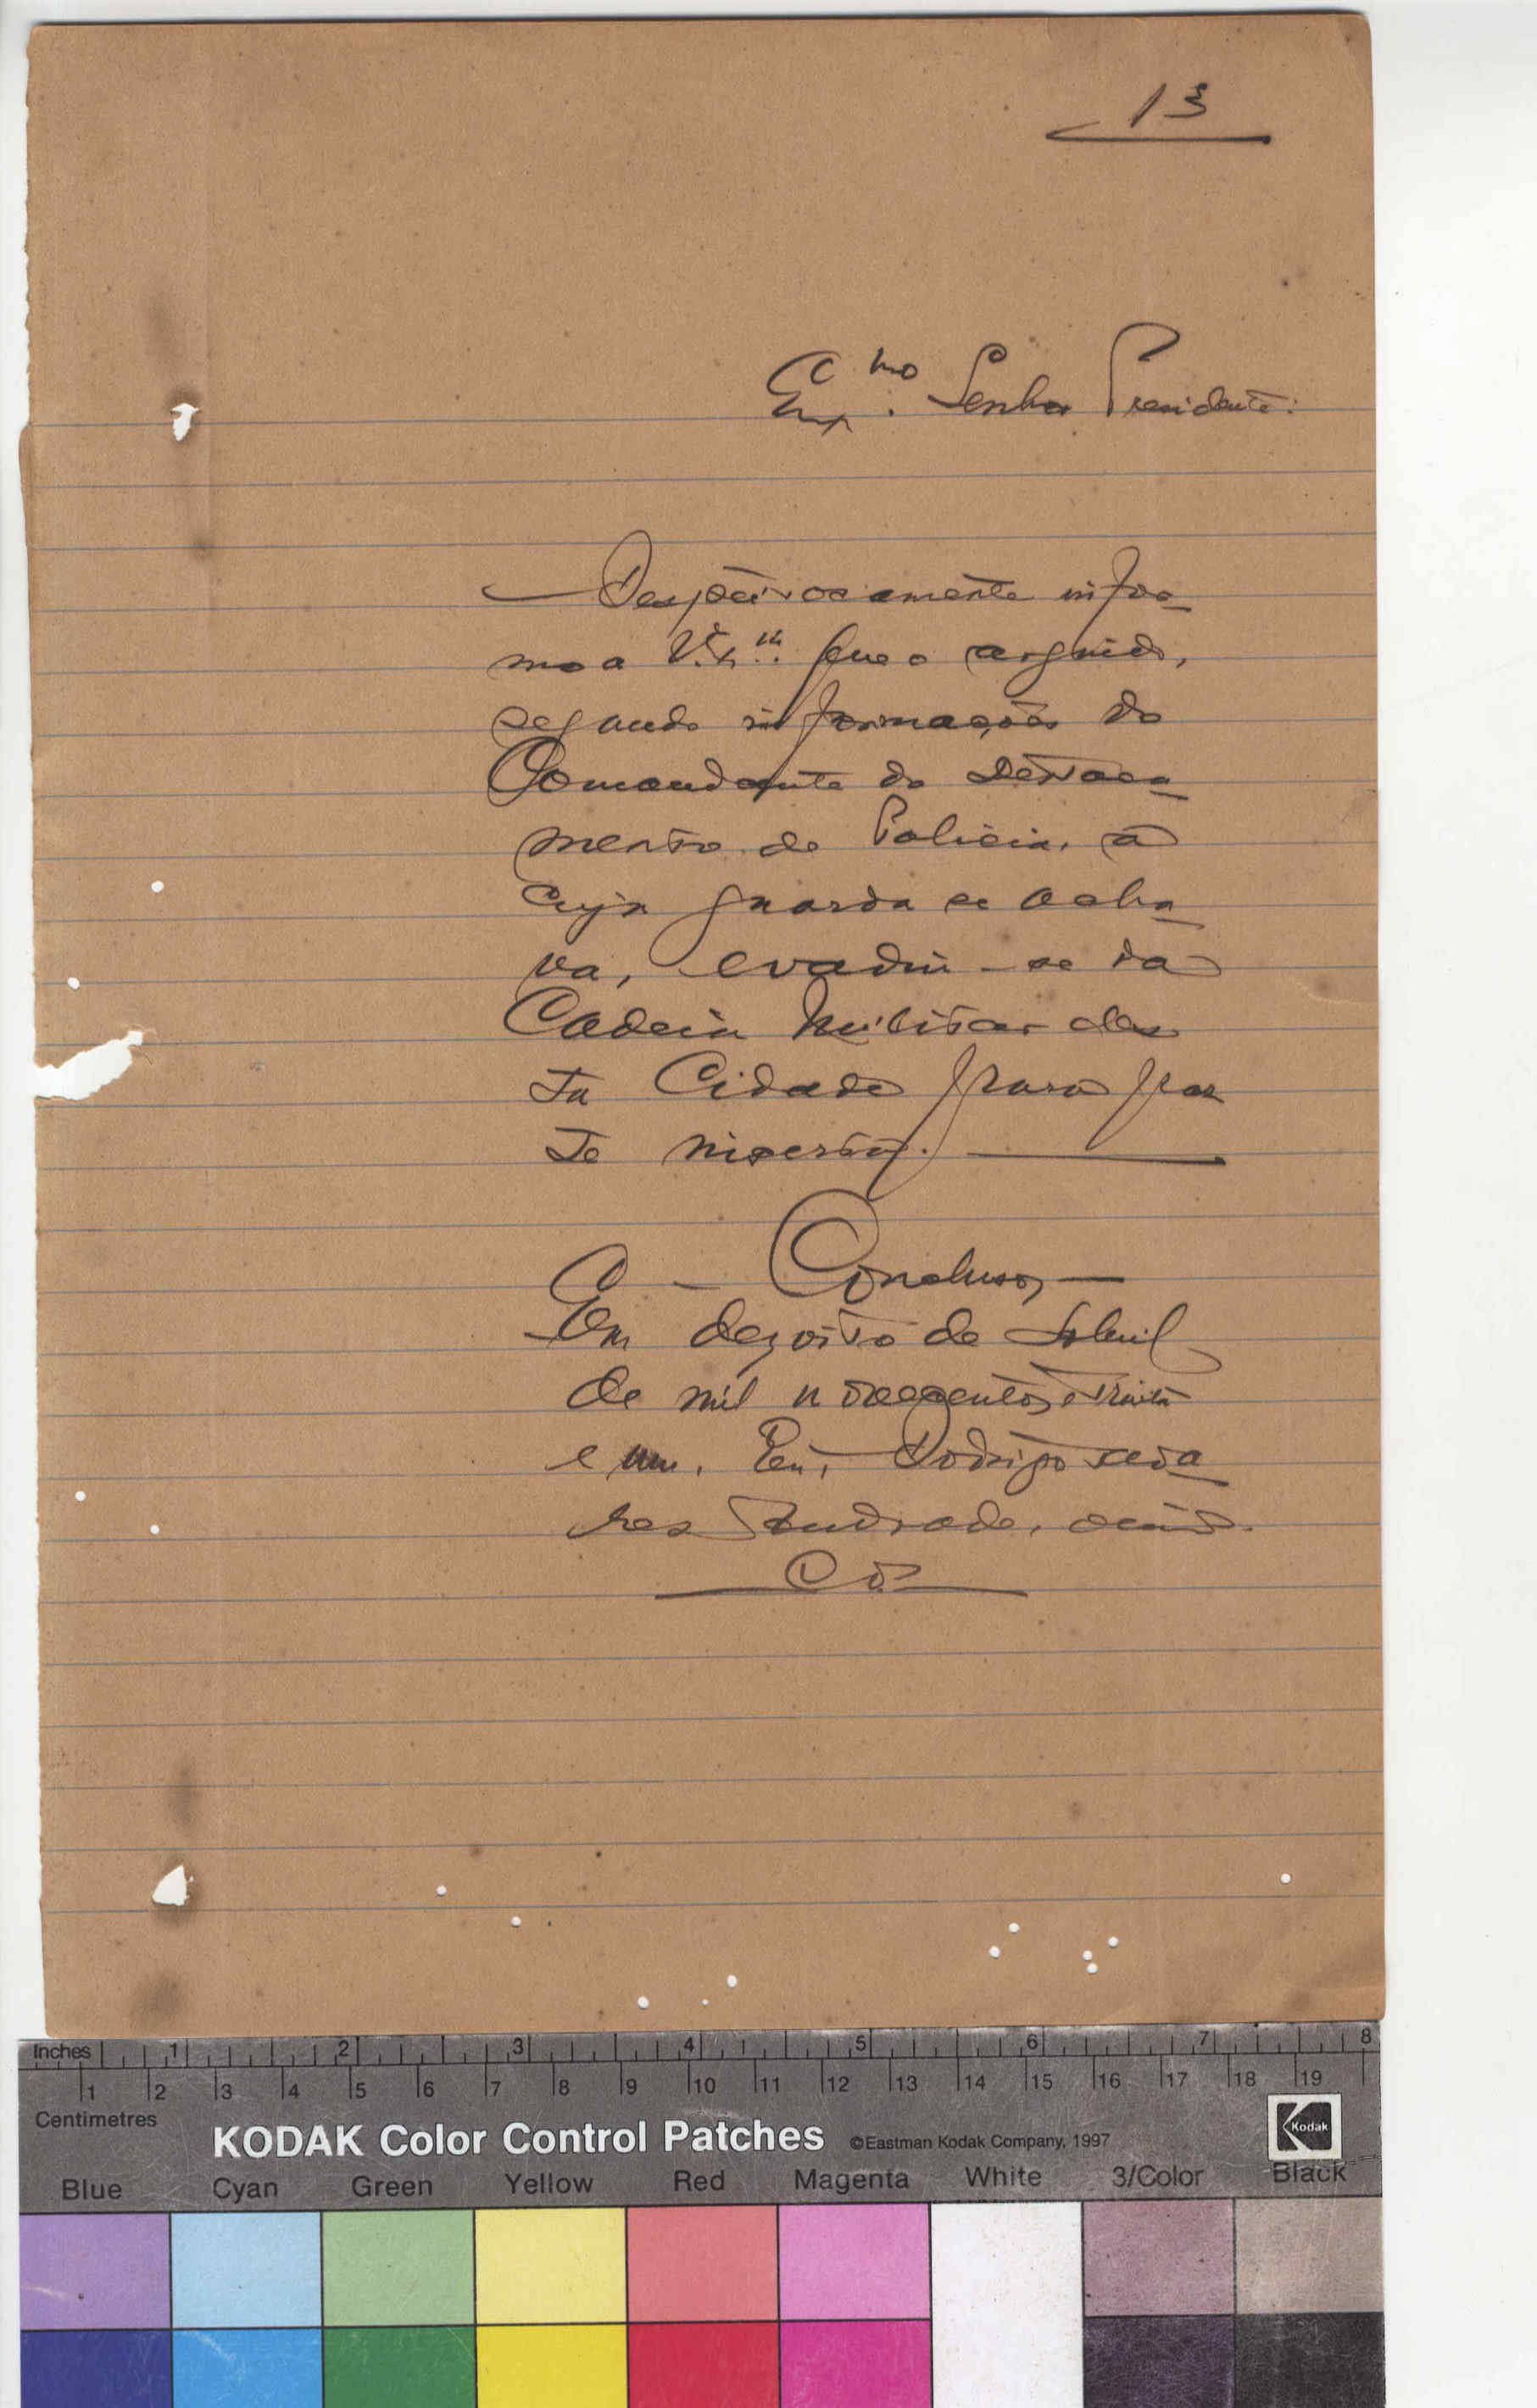 13
Ex.mo Senhor Presidente:
Respeitosamente infor-
mo a V.Ex.ª que o arguido,
segundo informações do
Comandante do Destaca-
mento de Policia, á
cuja guarda se acha-
va, evadiu-se da
Cadeia Militar des
ta Cidade para par
te incerta.
— Conclusos —
Em dezoito de Abril
de mil novecentos e trinta
e um. Eu, Rodrigo
Andrade,
Inches 1 2 3 4 5 6 7 8
1 2 3 4 5 6 7 8 9 10 11 12 13 14 15 16 17 18 19
Centimetres
KODAK Color Control Patches ©Eastman Kodak Company, 1997 Kodak
Blue Cyan Green Yellow Red Magenta White 3/Color Black